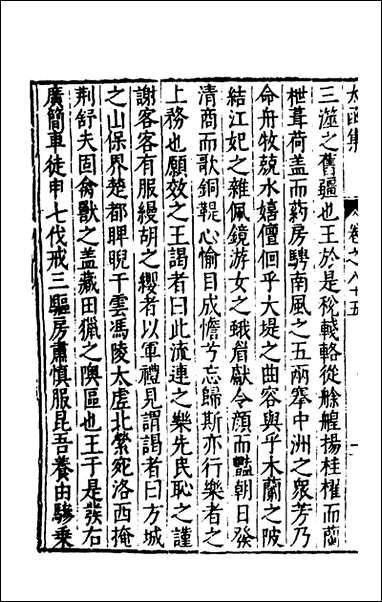 太函集 卷之八十五
三澨之舊疆也王於是稅輚輅從艅艎揚桂櫂而蘭
枻葺荷盖而葯房騁南風之五兩搴中洲之衆芳乃
命舟牧兢水嬉儃佪乎大堤之曲容與乎木蘭之陂
結江妃之雜佩鏡游女之蛾眉獻令顔而豔朝日發
清商而歌銅鞮心愉目成憺兮忘歸斯亦行樂者之
上務也願效之王謁者曰此流連之樂先民恥之謹
謝客客有服縵胡之纓者以軍禮見謂謁者曰方城
之山保界楚都睥睨干雲馮陵太虛北縈宛洛西掩
荆舒夫固禽獸之盖藏田獵之隩區也王于是發右
廣簡車徒申七伐戒三驅房肅慎服昆吾養由驂乗